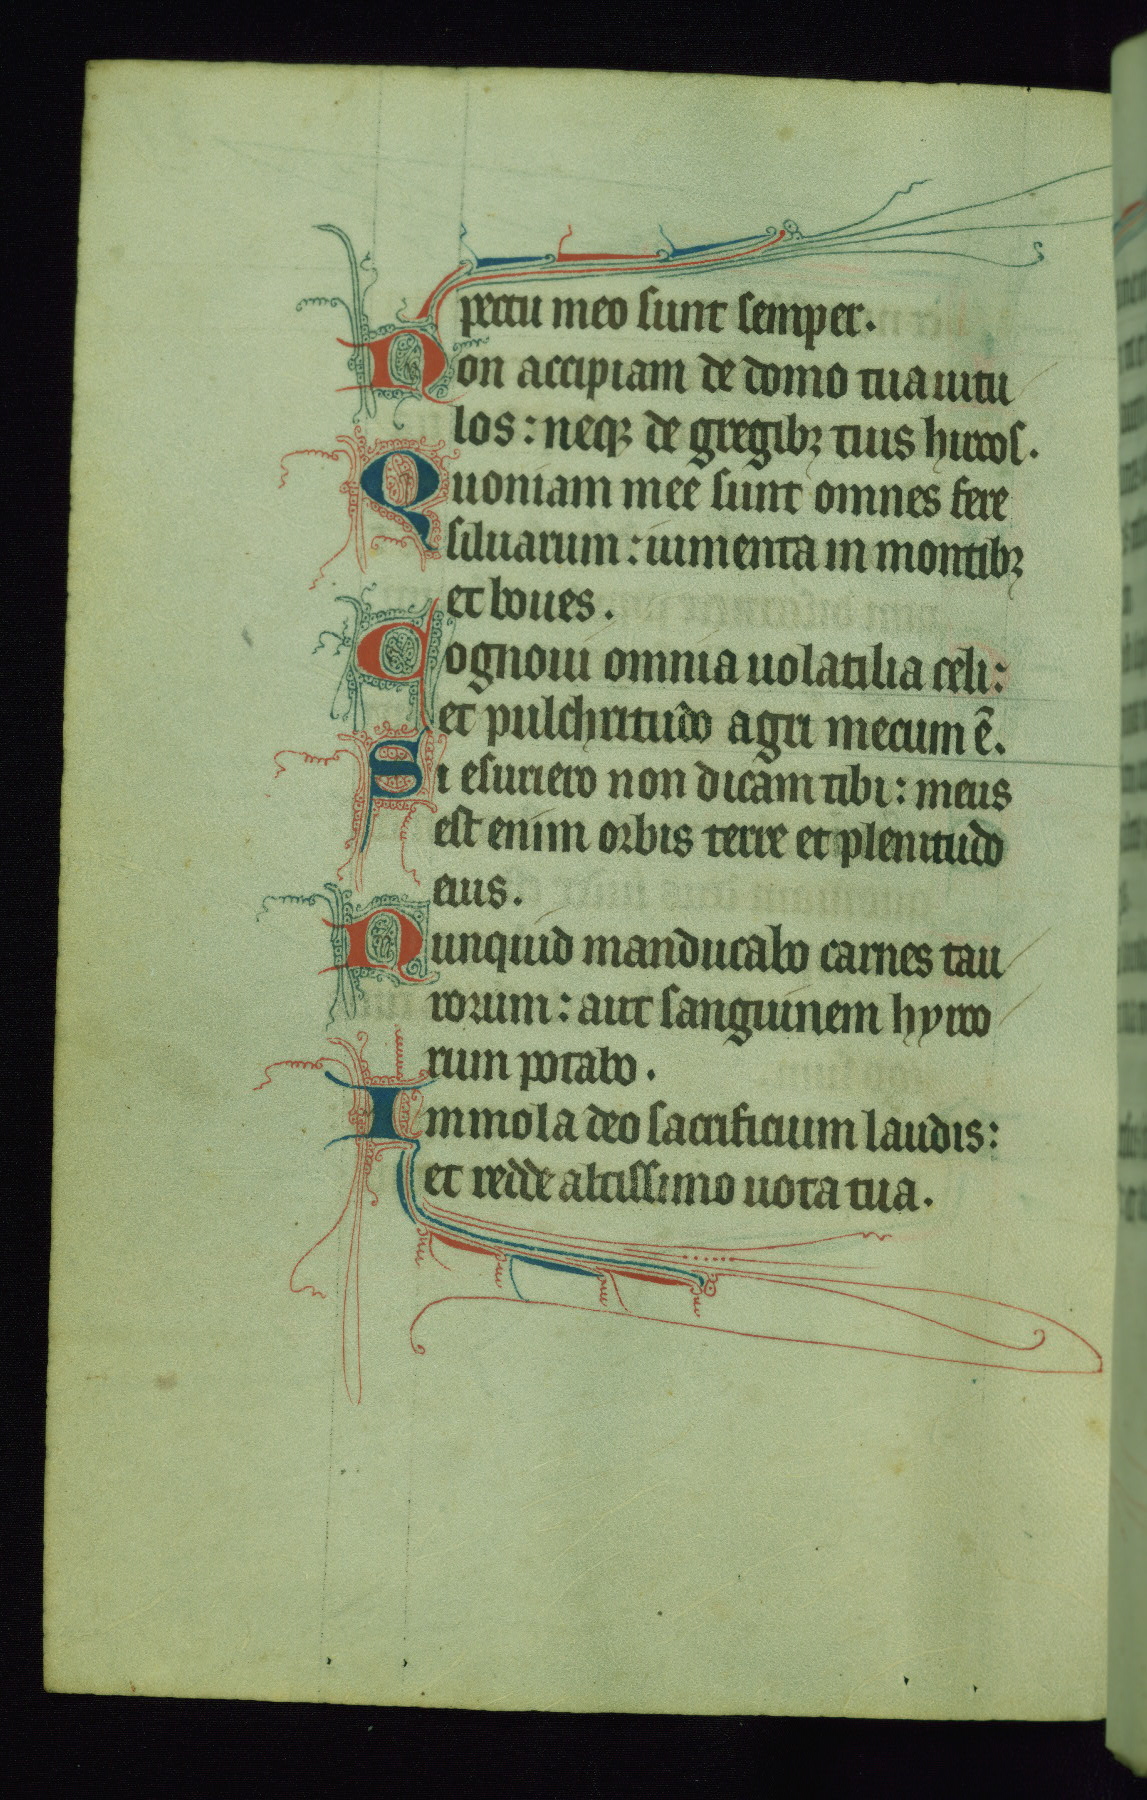 pectu meo sunt semper.
Non accipiam de domo tua uitu
los: neqꝫ de gregibꝫ tuis hircos.
Quoniam mee sunt omnes fere
siluarum: iumenta in montibꝫ
et boues.
Cognoui omnia uolatilia celi:
et pulchritudo agri mecum ē.
Si esuriero non dicam tibi: meus
est enim orbis terre et plenitudo
eius.
Nunquid manducabo carnes tau
rorum: aut sanguinem hyrco
rum potabo.
Immola deo sacrificium laudis:
et redde altissimo uota tua.